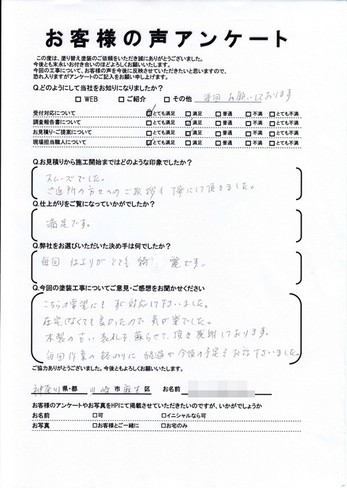 お客様の声アンケート
この度は、塗り替え塗装のご依頼をいただき誠にありがとうございました。
今後とも末永いお付き合いのほどよろしくお願いいたします。
今回の工事について、お客様の声を今後に反映させていただきたいと思いますので、
恐れ入りますがアンケートのご記入をお願い申し上げます。
Q.どのようにして当社をお知りになりましたか?
□ WEB □ ご紹介 □ その他 毎回お願いしております
受付対応について ☑とても満足 □満足 □普通 □不満 □とても不満
調査報告書について □とても満足 □満足 □普通 □不満 □とても不満
お見積り・ご提案について □とても満足 □満足 □普通 □不満 □とても不満
現場担当職人について ☑とても満足 □満足 □普通 □不満 □とても不満
Q.お見積りから施工開始まではどのような印象でしたか?
スムーズでした。
ご近所の方々へのご挨拶も丁寧にして頂きました。
Q.仕上がりをご覧になっていかがでしたか?
満足です。
Q.弊社をお選びいただいた決め手は何でしたか?
毎回 仕上りがとても綺麗です。
Q.今回の塗装工事についてご意見・ご感想をお聞かせください
こちらの要望にも対応して下さいました。
在宅しなくても良かったので気が楽でした。
木製の古い表札を蘇らせて頂き感謝しております。
毎回作業の終わりに
今後の予定をお話下さいました。
ご協力ありがとうございました。今後ともよろしくお願いいたします。
神奈川 県・都 川崎 市 麻生 区 お名前
お客様のアンケートやお写真をHPにて掲載させていただきたいのですが、いかがでしょうか
お名前 □可 □イニシャルなら可
お写真 □お客様とご一緒に □お宅のみ